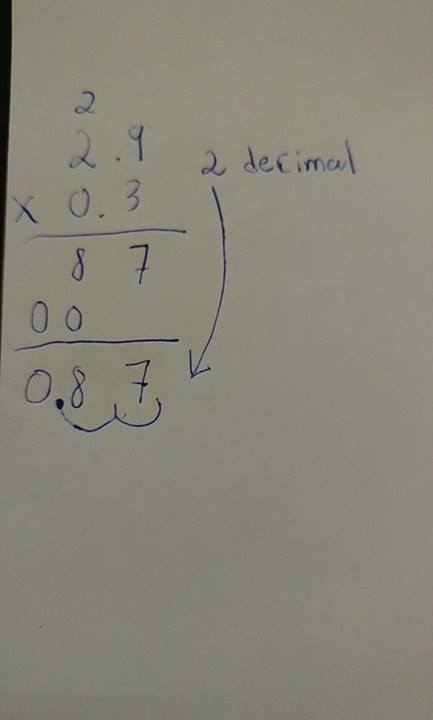 2
2.9
x 0.3
87
00
0.87
2 decimal